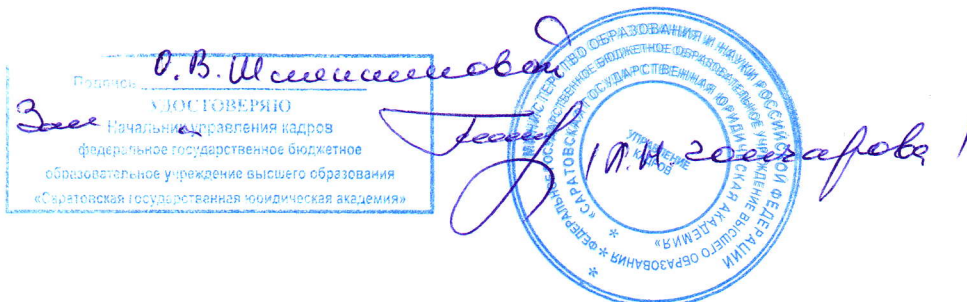 Подпись О.В.
УДОСТОВЕРЯЮ
Зам Начальник управления кадров
федеральное государственное бюджетное
образовательное учреждение высшего образования
«Саратовская государственная юридическая академия»
/Л.Н. Гончарова/
МИНИСТЕРСТВО ОБРАЗОВАНИЯ И НАУКИ РОССИЙСКОЙ ФЕДЕРАЦИИ
* ФЕДЕРАЛЬНОЕ ГОСУДАРСТВЕННОЕ БЮДЖЕТНОЕ ОБРАЗОВАТЕЛЬНОЕ УЧРЕЖДЕНИЕ ВЫСШЕГО ОБРАЗОВАНИЯ *
* «САРАТОВСКАЯ ГОСУДАРСТВЕННАЯ ЮРИДИЧЕСКАЯ АКАДЕМИЯ»
УПРАВЛЕНИЕ
КАДРОВ